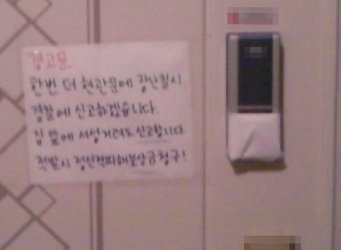 경고문
한번 더 현관문에 장난칠시
경찰에 신고하겠습니다
집 앞에 서성거려도 신고합니다
적발시 정신적피해보상금청구!